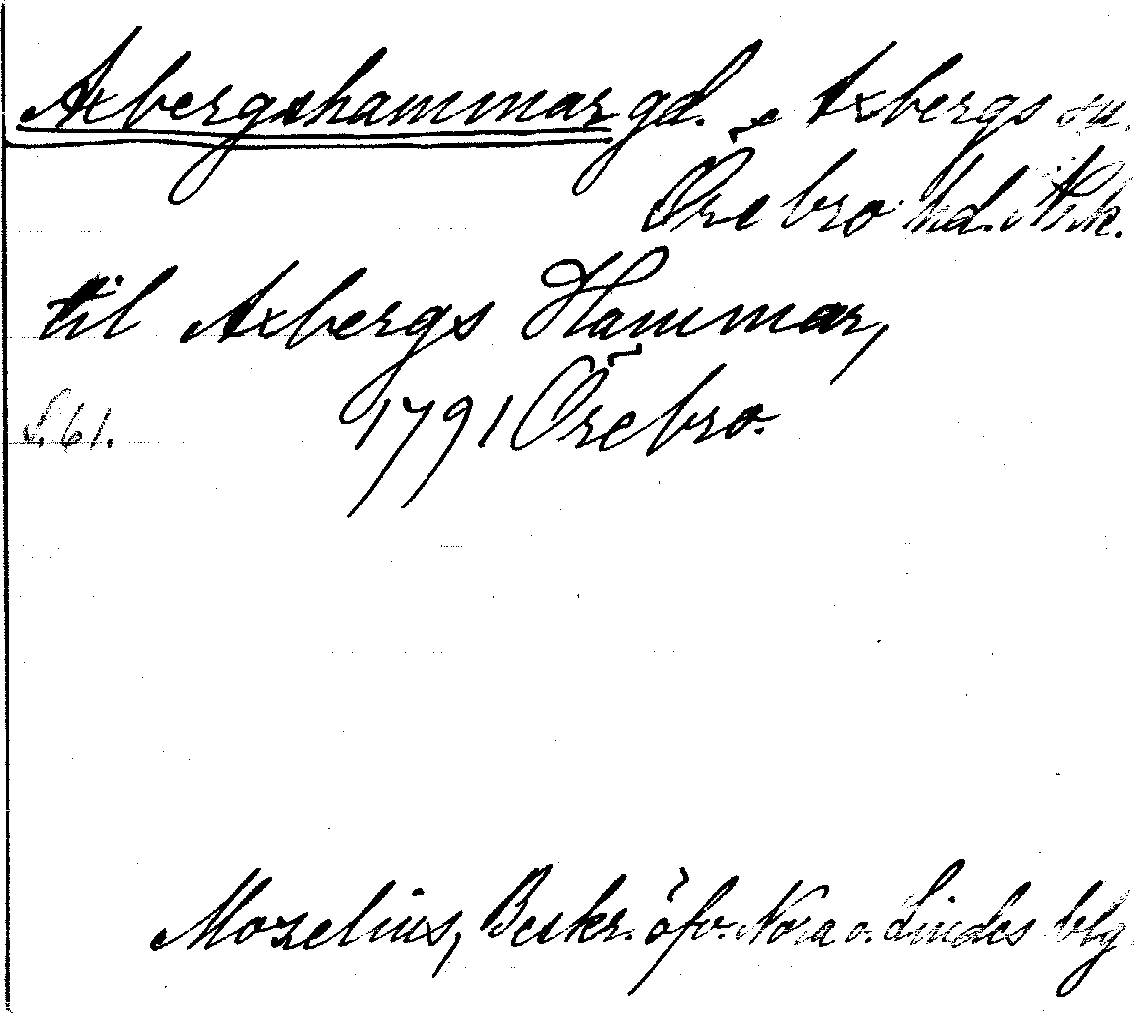 Axbergshammar gd. Axbergs sn.
Örebro hd. Nrk.
til Axbergs Hammar,
S. 61. 1791 Örebro.
Mozelius, Beskr. öfv. Nora o. Lindes blg